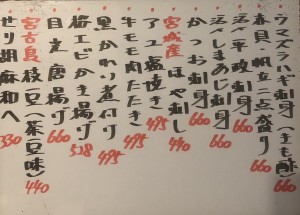 ウマズラハギ刺身(きも酢) 660
春貝・帆立二点盛り 660
活〆平政刺身 660
活〆しまあじ刺身 660
かつお刺身 660
宮城産 ほや刺し 440
アユ塩焼き 495
牛モモ肉たたき
黒かわり煮付け 495
桜エビかき揚げ 528
目光唐揚げ 660
宮古島 枝豆(茶豆味) 440
せり胡麻和へ 330